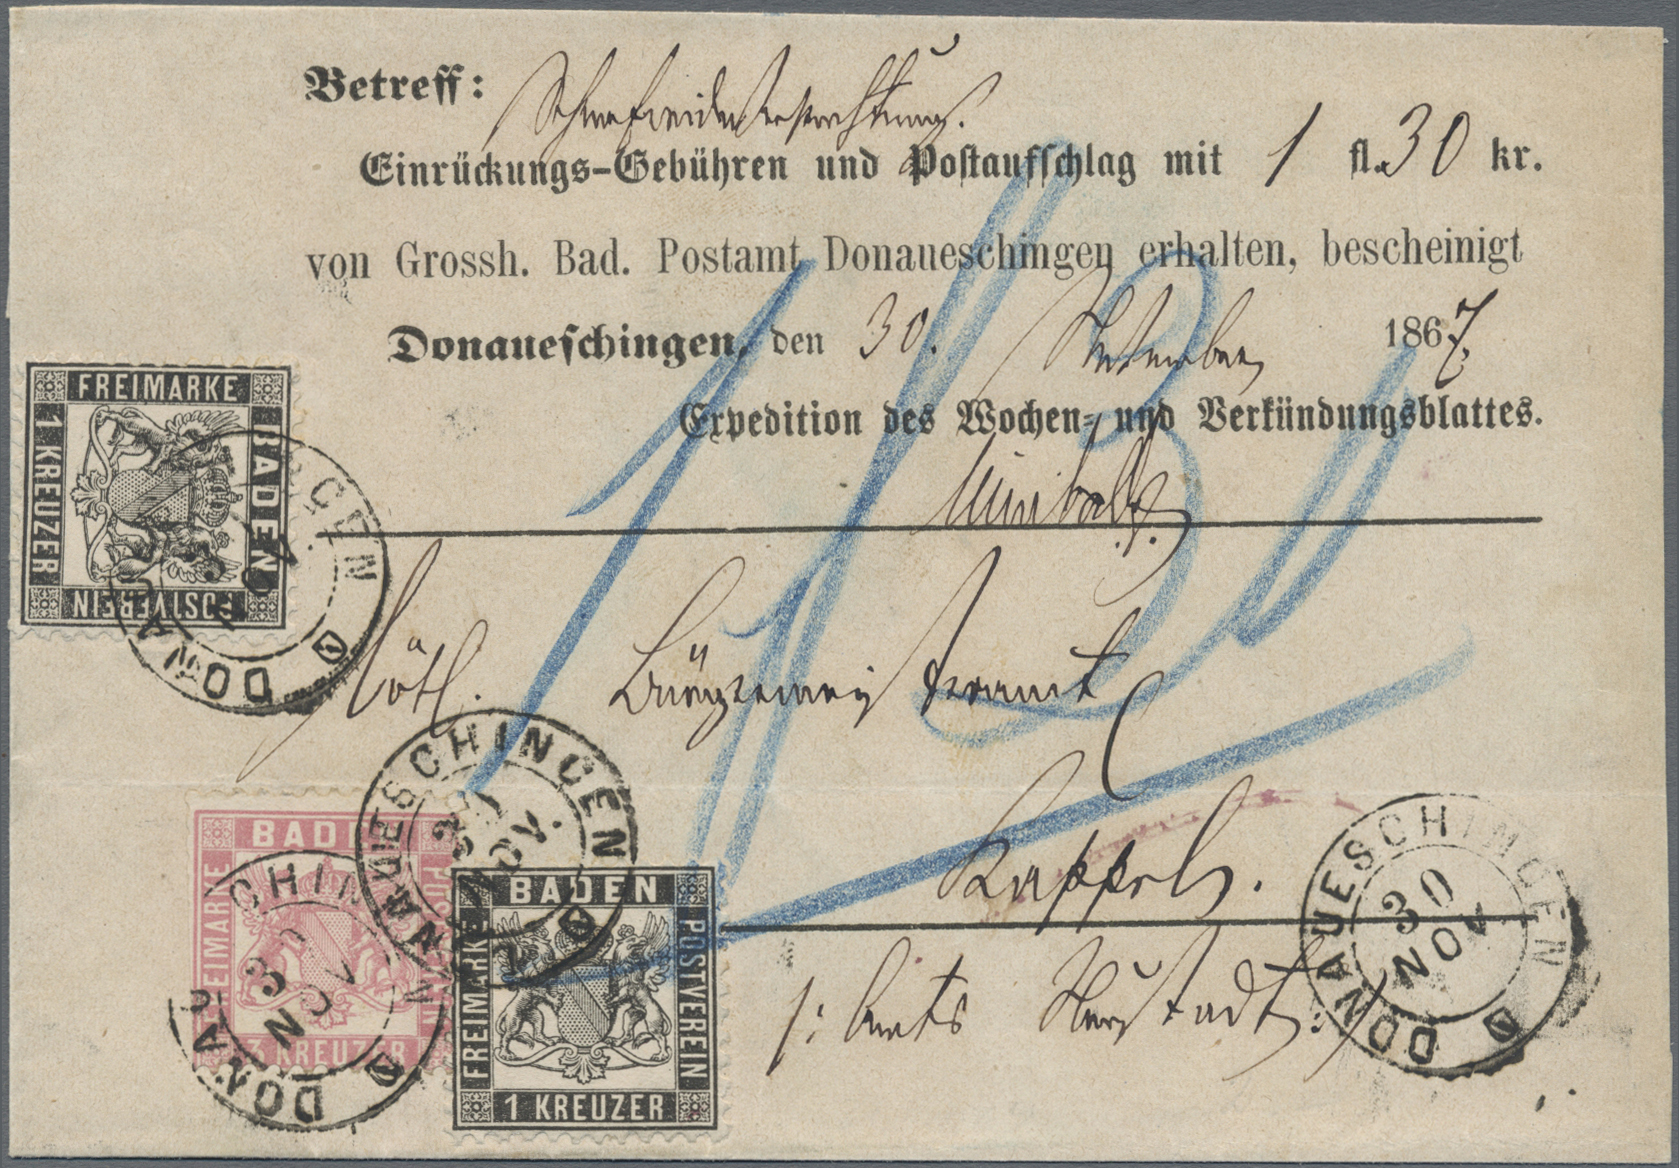 Betreff:
Einrückungs-Gebühren und Postaufschlag mit 1 fl. 30 kr.
von Grossh. Bad. Postamt Donaueschingen erhalten, bescheinigt
Donaueschingen, den 30. November 1867.
Expedition des Wochen- und Verkündungsblattes.
FREIMARKE
1 KREUZER
BADEN
POSTVEREIN
Löbl. Bürgermeisteramt
Kappel.
/: Amts Neustadt :/
BADEN
FREIMARKE
3 KREUZER
DONAUESCHINGEN
30 NOV.
BADEN
FREIMARKE
POSTVEREIN
1 KREUZER
DONAUESCHINGEN
30
NOV
DONAUESCHINGEN
30
NOV